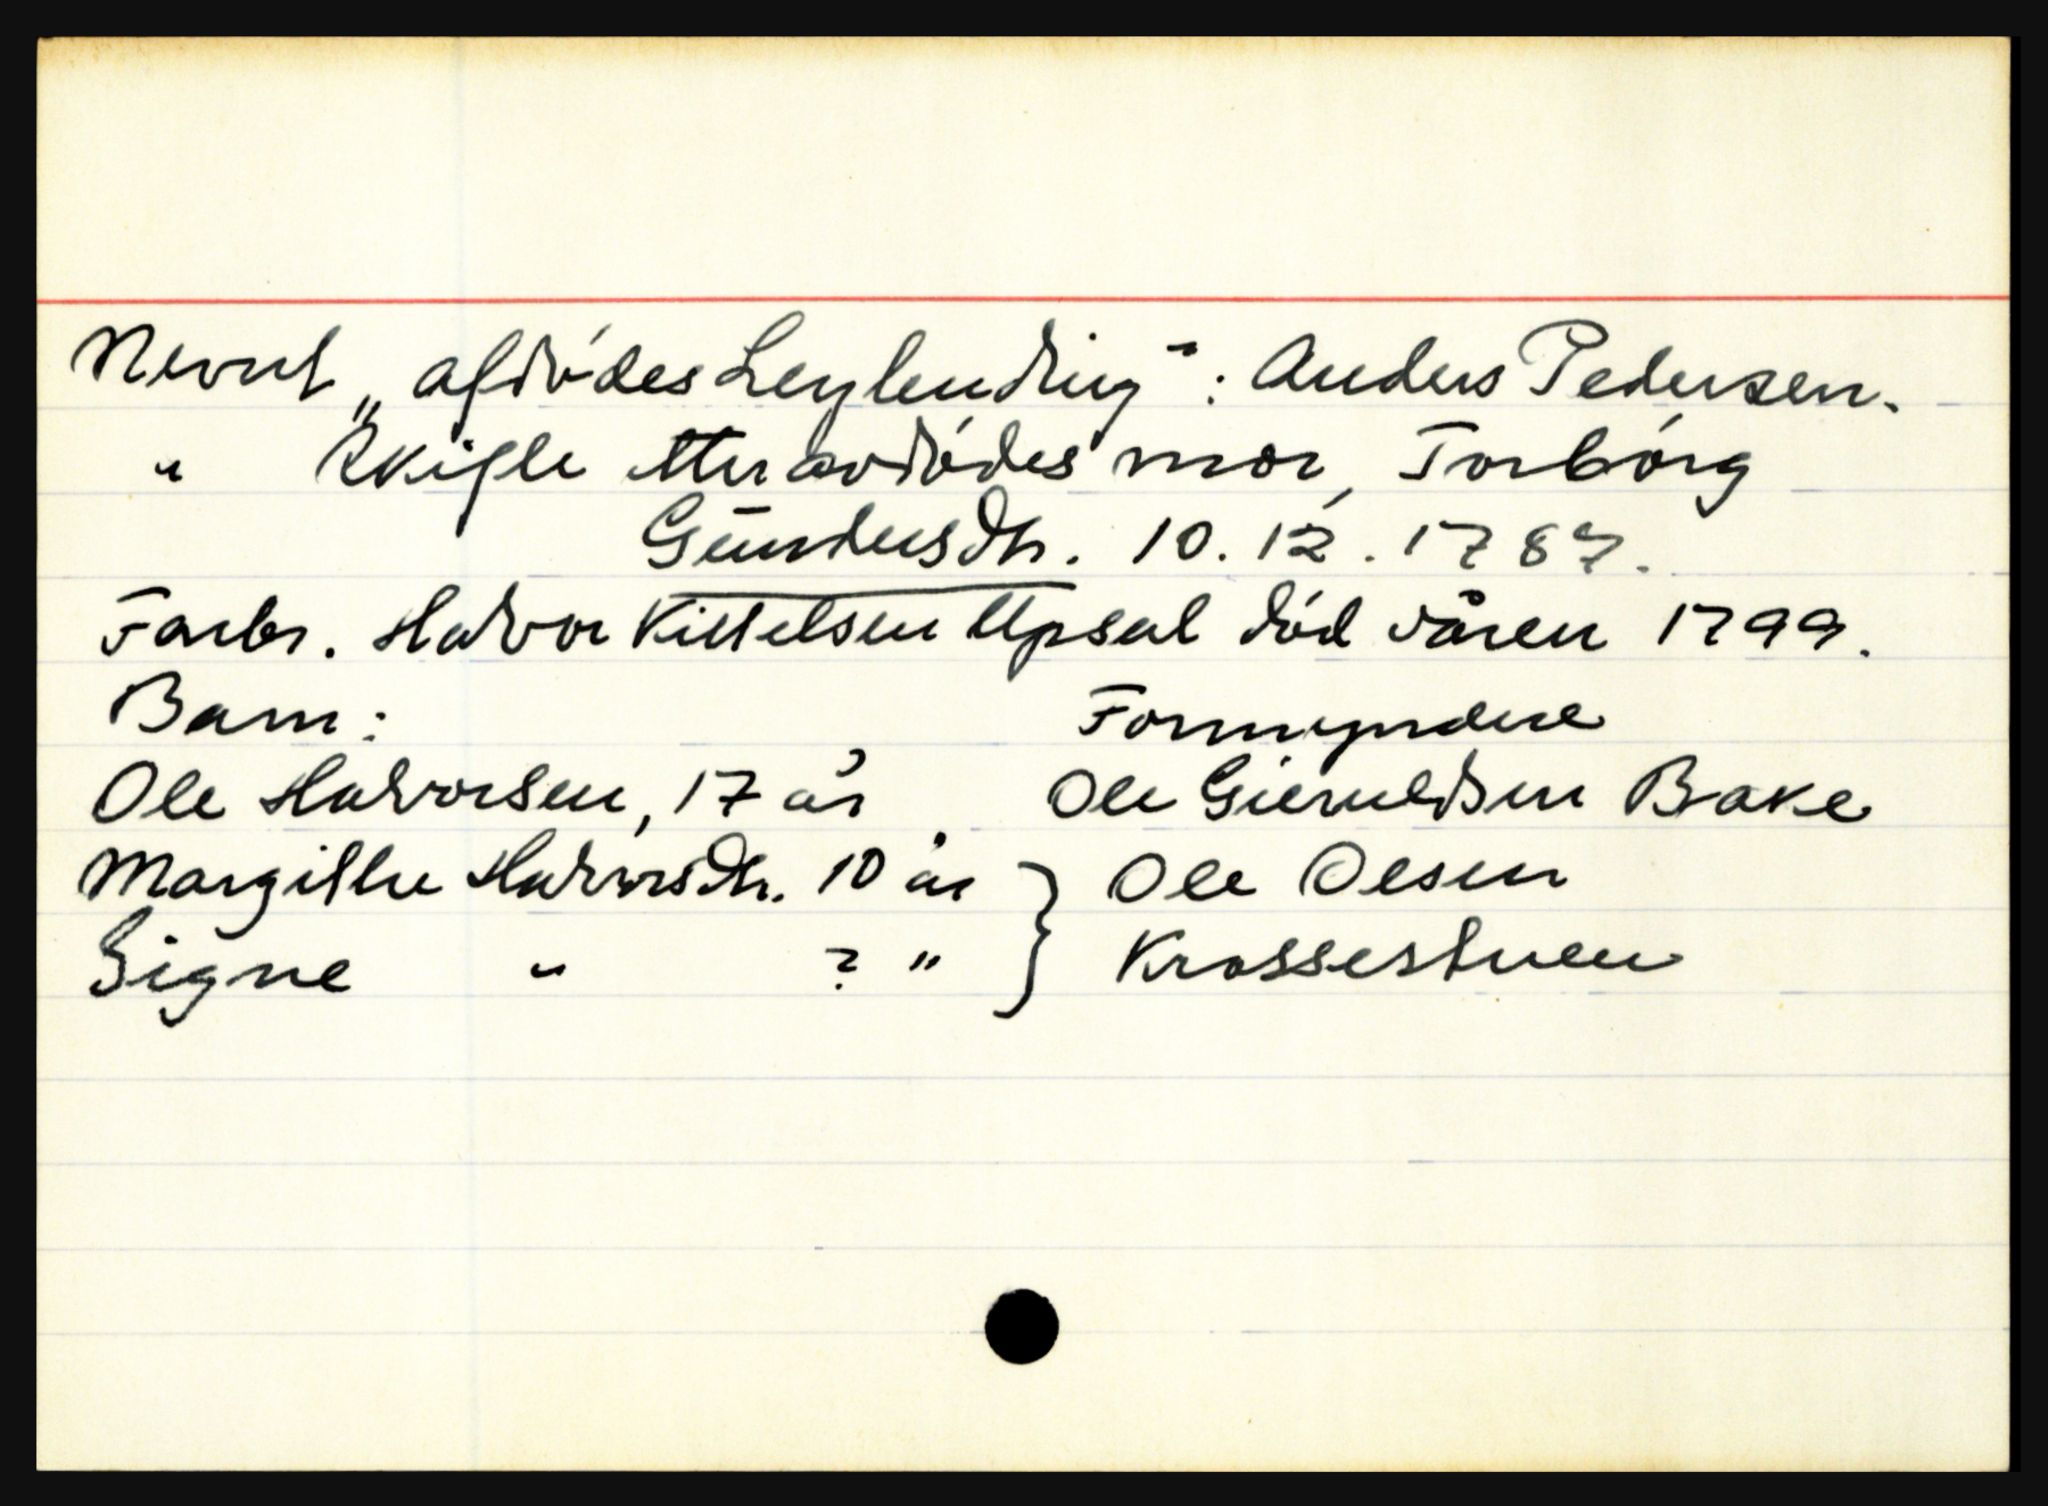 Nevnt „afdödes Leylending": Anders Pedersen.
" Skifte etter avdödes mor, Torbörg
Gundersdtr. 10.12.1787.
Farbr. Halvor Kittelsen Upsal död våren 1799.
Barn: Formyndere
Ole Halvorsen, 17 år Ole Gieruldsen Bake
Margitte Halvorsdtr. 10 år } Ole Olsen
Signe " ? " } Krossestuen